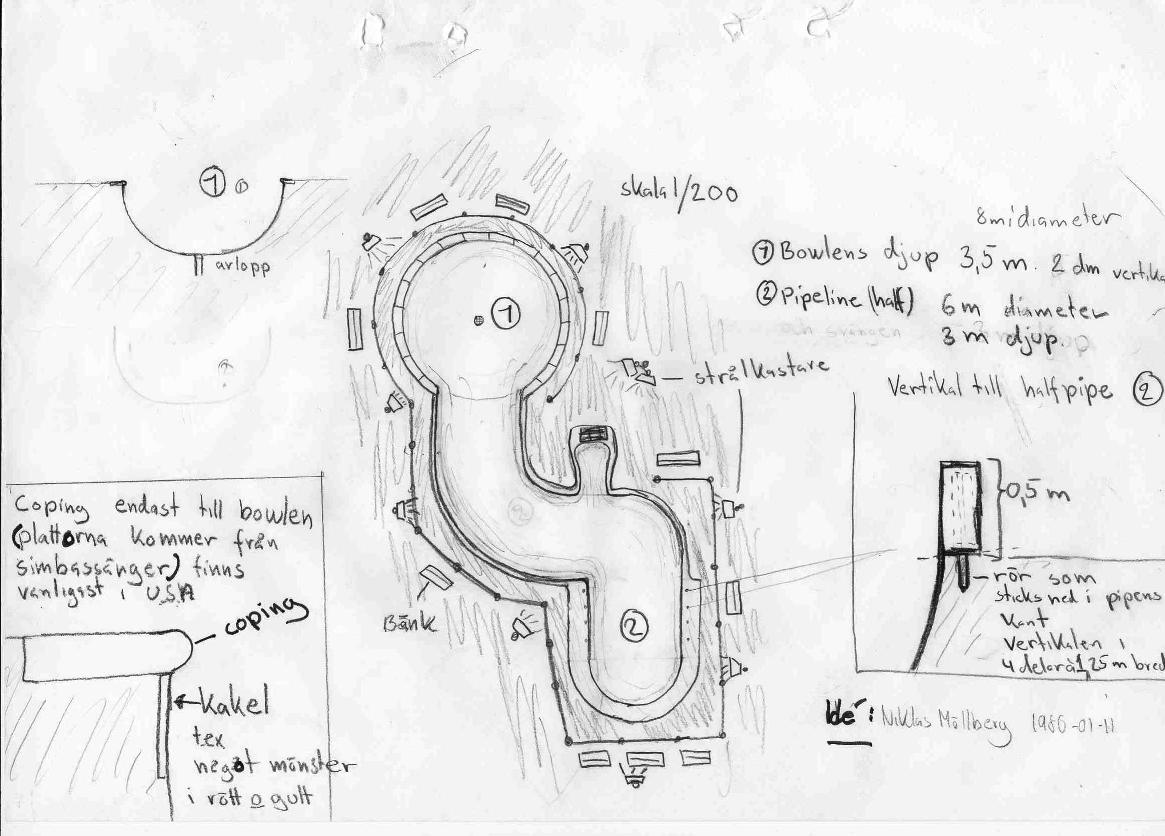 1
avlopp
skala 1/200
8m i diameter
1 Bowlens djup 3,5 m. 2 dm vertika
2 Pipeline (half) 6 m diameter
3 m djup.
och svängen
1
strålkastare
Vertikal till halfpipe 2
0,5 m
rör som
sticks ned i pipens
kant
vertikalen i
4 delar à 1,25 m bred
Coping endast till bowlen
(plattorna kommer från
simbassänger) finns
vanligast i USA
coping
Kakel
tex
något mönster
i rött o gult
2
Bänk
2
Idé: Niklas Mällberg 1980-01-11